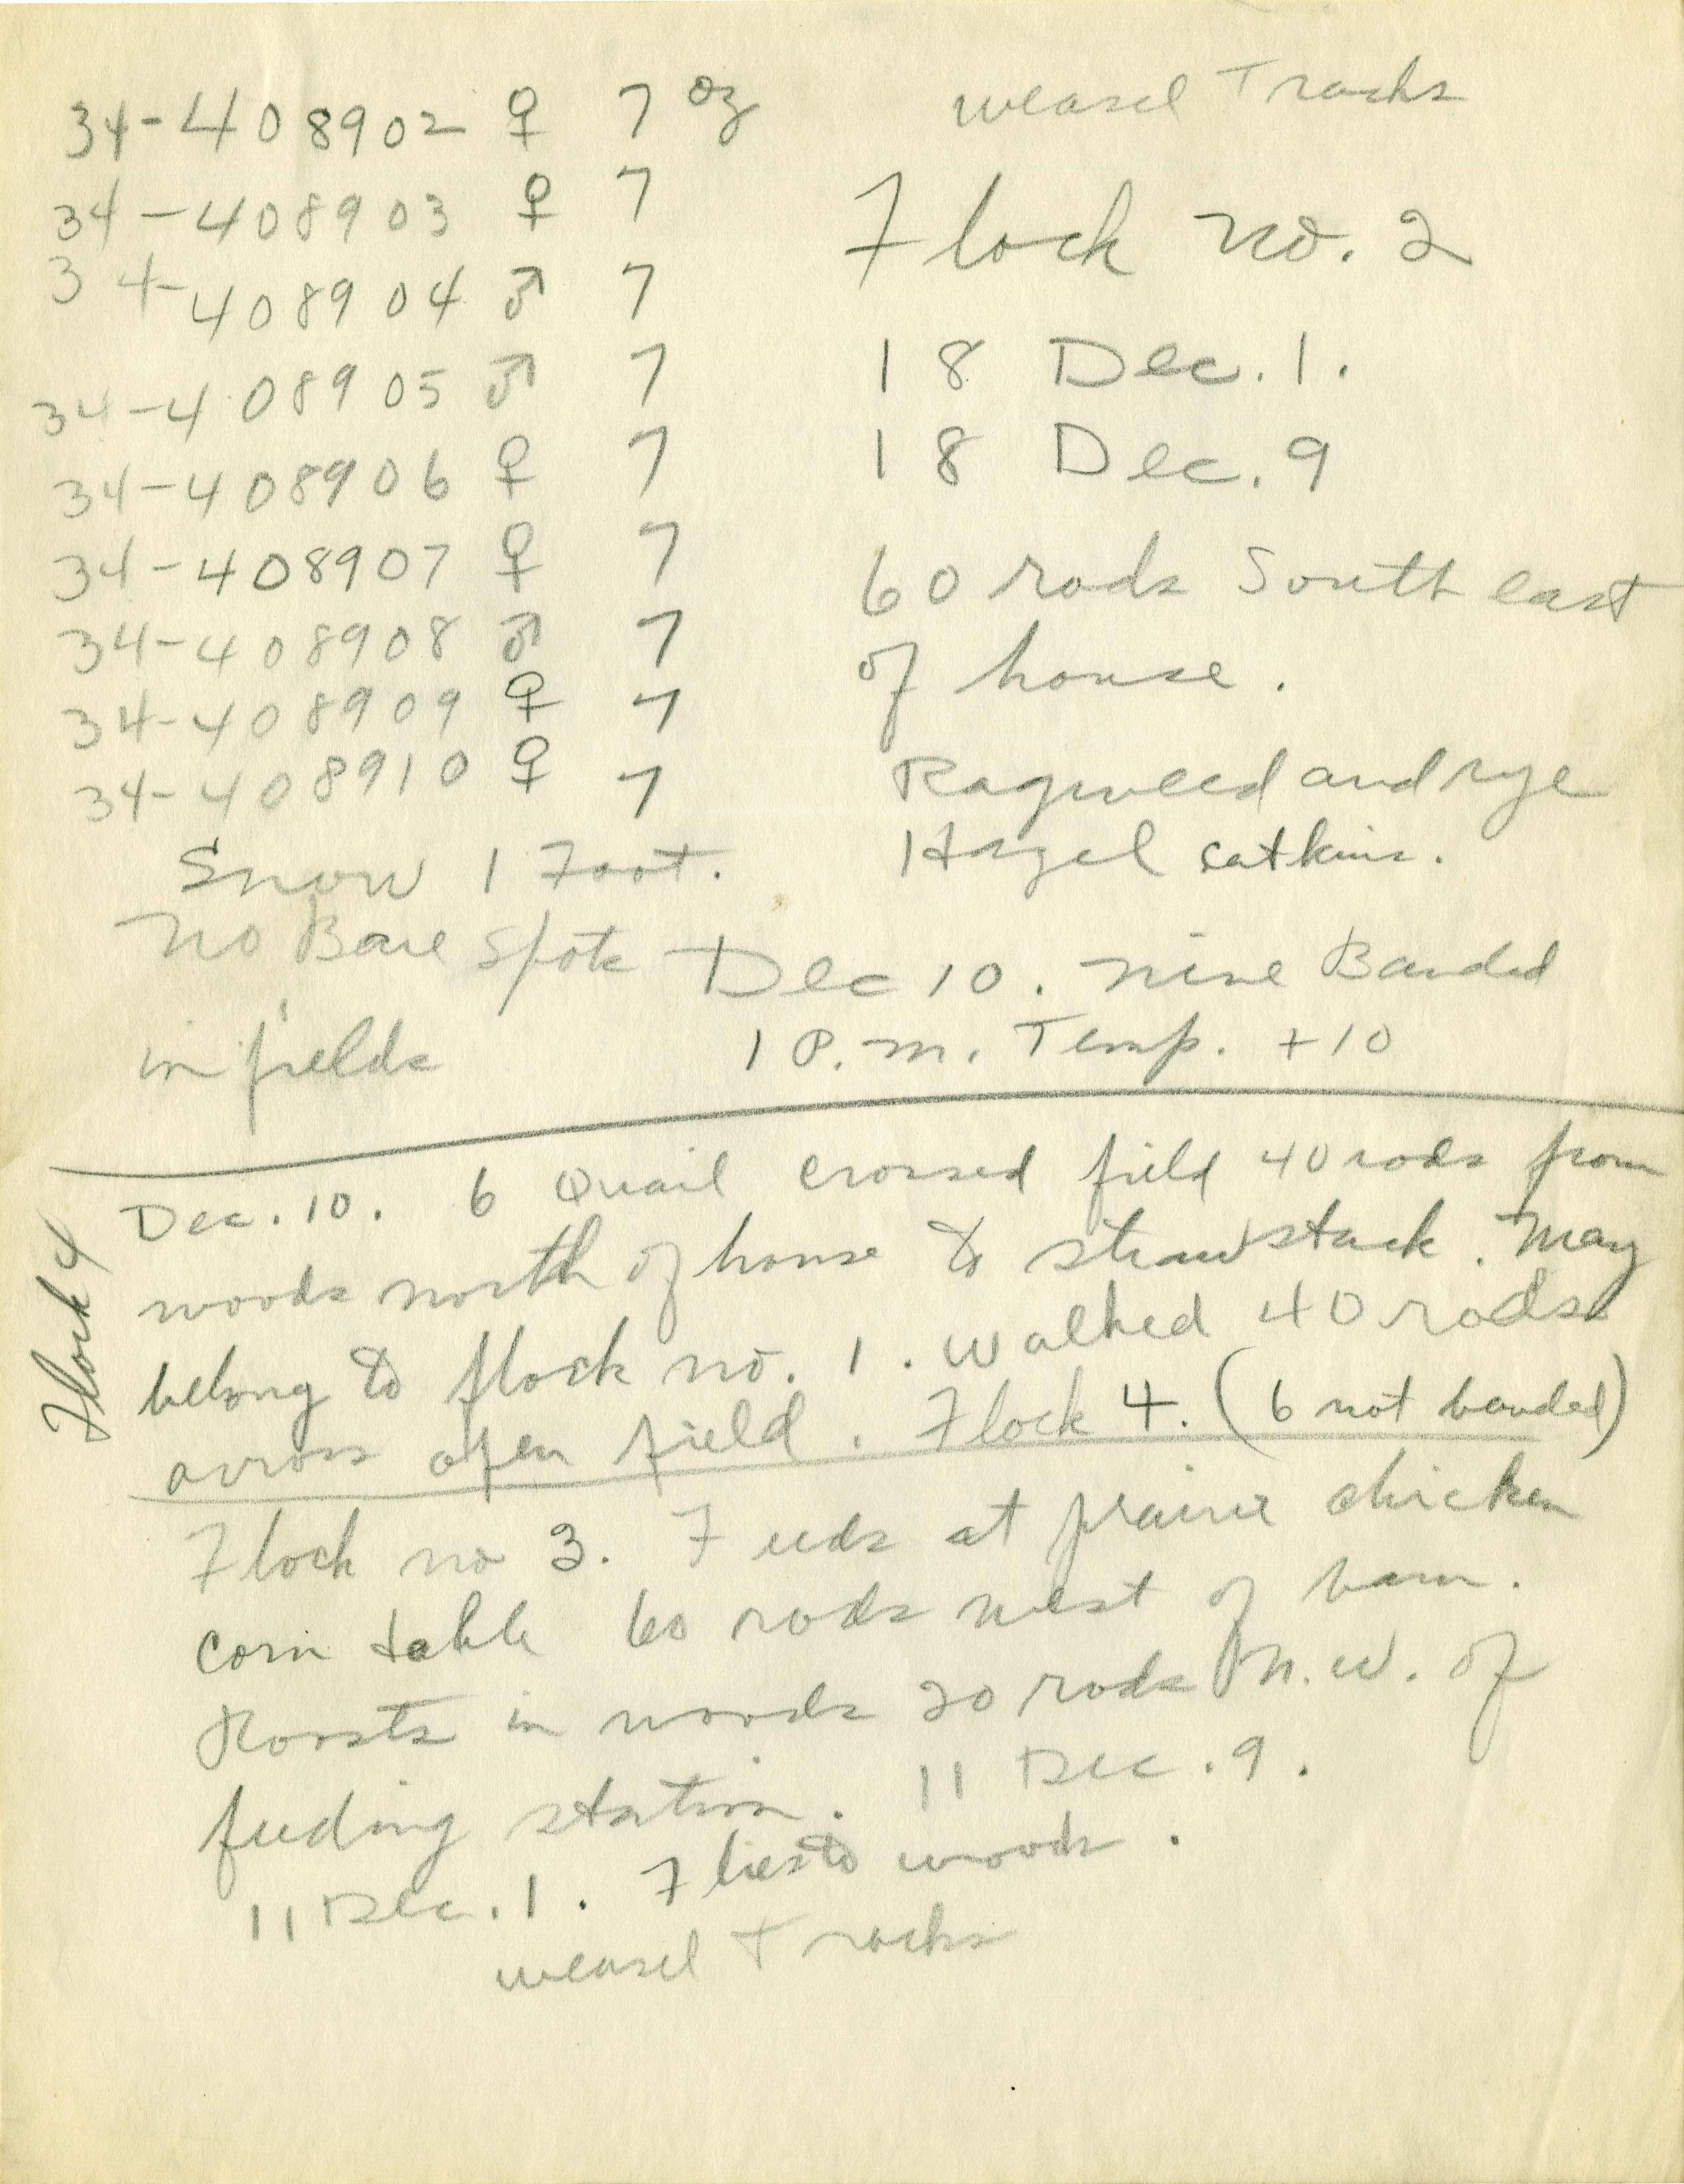 34-408902 ♀ 7 oz
34-408903 ♀ 7
34-408904 ♂ 7
34-408905 ♂ 7
34-408906 ♀ 7
34-408907 ♀ 7
34-408908 ♂ 7
34-408909 ♀ 7
34-408910 ♀ 7
Snow 1 Foot.
No Bare Spots
in fields
weasel Tracks
Flock no. 2
18 Dec. 1.
18 Dec. 9
60 rods South east
of house.
Ragweed and rye
Hazel catkins.
Dec 10. nine Banded
1 P.m. Temp. +10
Flock 4
Dec. 10. 6 Quail crossed field 40 rods from
woods north of house to straw stack. May
belong to flock no. 1. Walked 40 rods
across open field. Flock 4. (6 not banded)
Flock no 3. Feeds at prairie chicken
corn table 60 rods west of barn.
Roosts in woods 20 rods N.W. of
feeding station. 11 Dec. 9.
11 Dec. 1. Flies to woods.
weasel Tracks